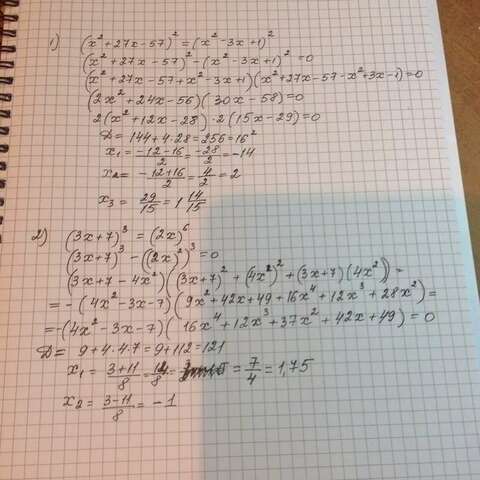 1) (x²+27x-57)²=(x²-3x+1)²
(x²+27x-57)²-(x²-3x+1)²=0
(x²+27x-57+x²-3x+1)(x²+27x-57-x²+3x-1)=0
(2x²+24x-56)(30x-58)=0
2(x²+12x-28)·2(15x-29)=0
D=144+4·28=256=16²
x₁=\frac{-12-16}{2}=\frac{-28}{2}=-14
x₂=\frac{-12+16}{2}=\frac{4}{2}=2
x₃=\frac{29}{15}=1\frac{14}{15}
2) (3x+7)³=(2x)⁶
(3x+7)³-((2x)²)³=0
(3x+7-4x²)((3x+7)²+(4x²)²+(3x+7)(4x²))=
=-(4x²-3x-7)(9x²+42x+49+16x⁴+12x³+28x²)=
=-(4x²-3x-7)(16x⁴+12x³+37x²+42x+49)=0
D=9+4·4·7=9+112=121
x₁=\frac{3+11}{8}=\frac{14}{8}=\frac{7}{4}=1,75
x₂=\frac{3-11}{8}=-1